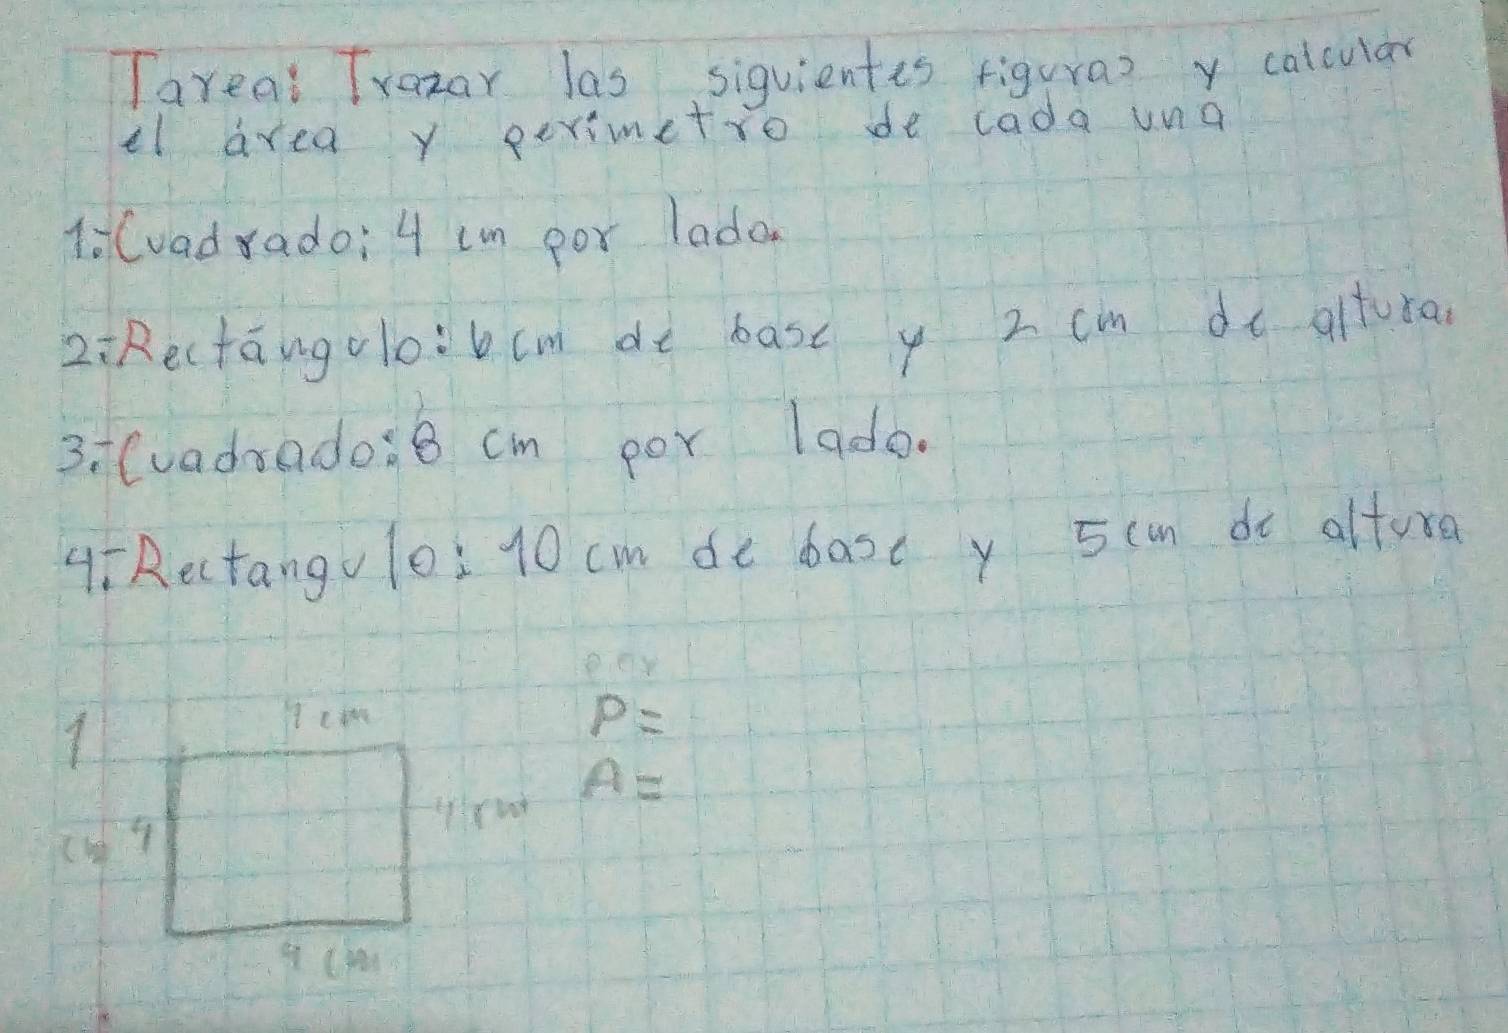 Tarea: Trazar las siguientes figuras y calcular
el área y perimetro de cada una
1.- Cuadrado: 4 cm por lado.
2.- Rectángulo: 6 cm de base y 2 cm de altura.
3.- Cuadrado: 8 cm por lado.
4.- Rectangulo: 10 cm de base y 5 cm de altura
por
1 4 cm P=
A=
cm 4 4 cm
4 cm